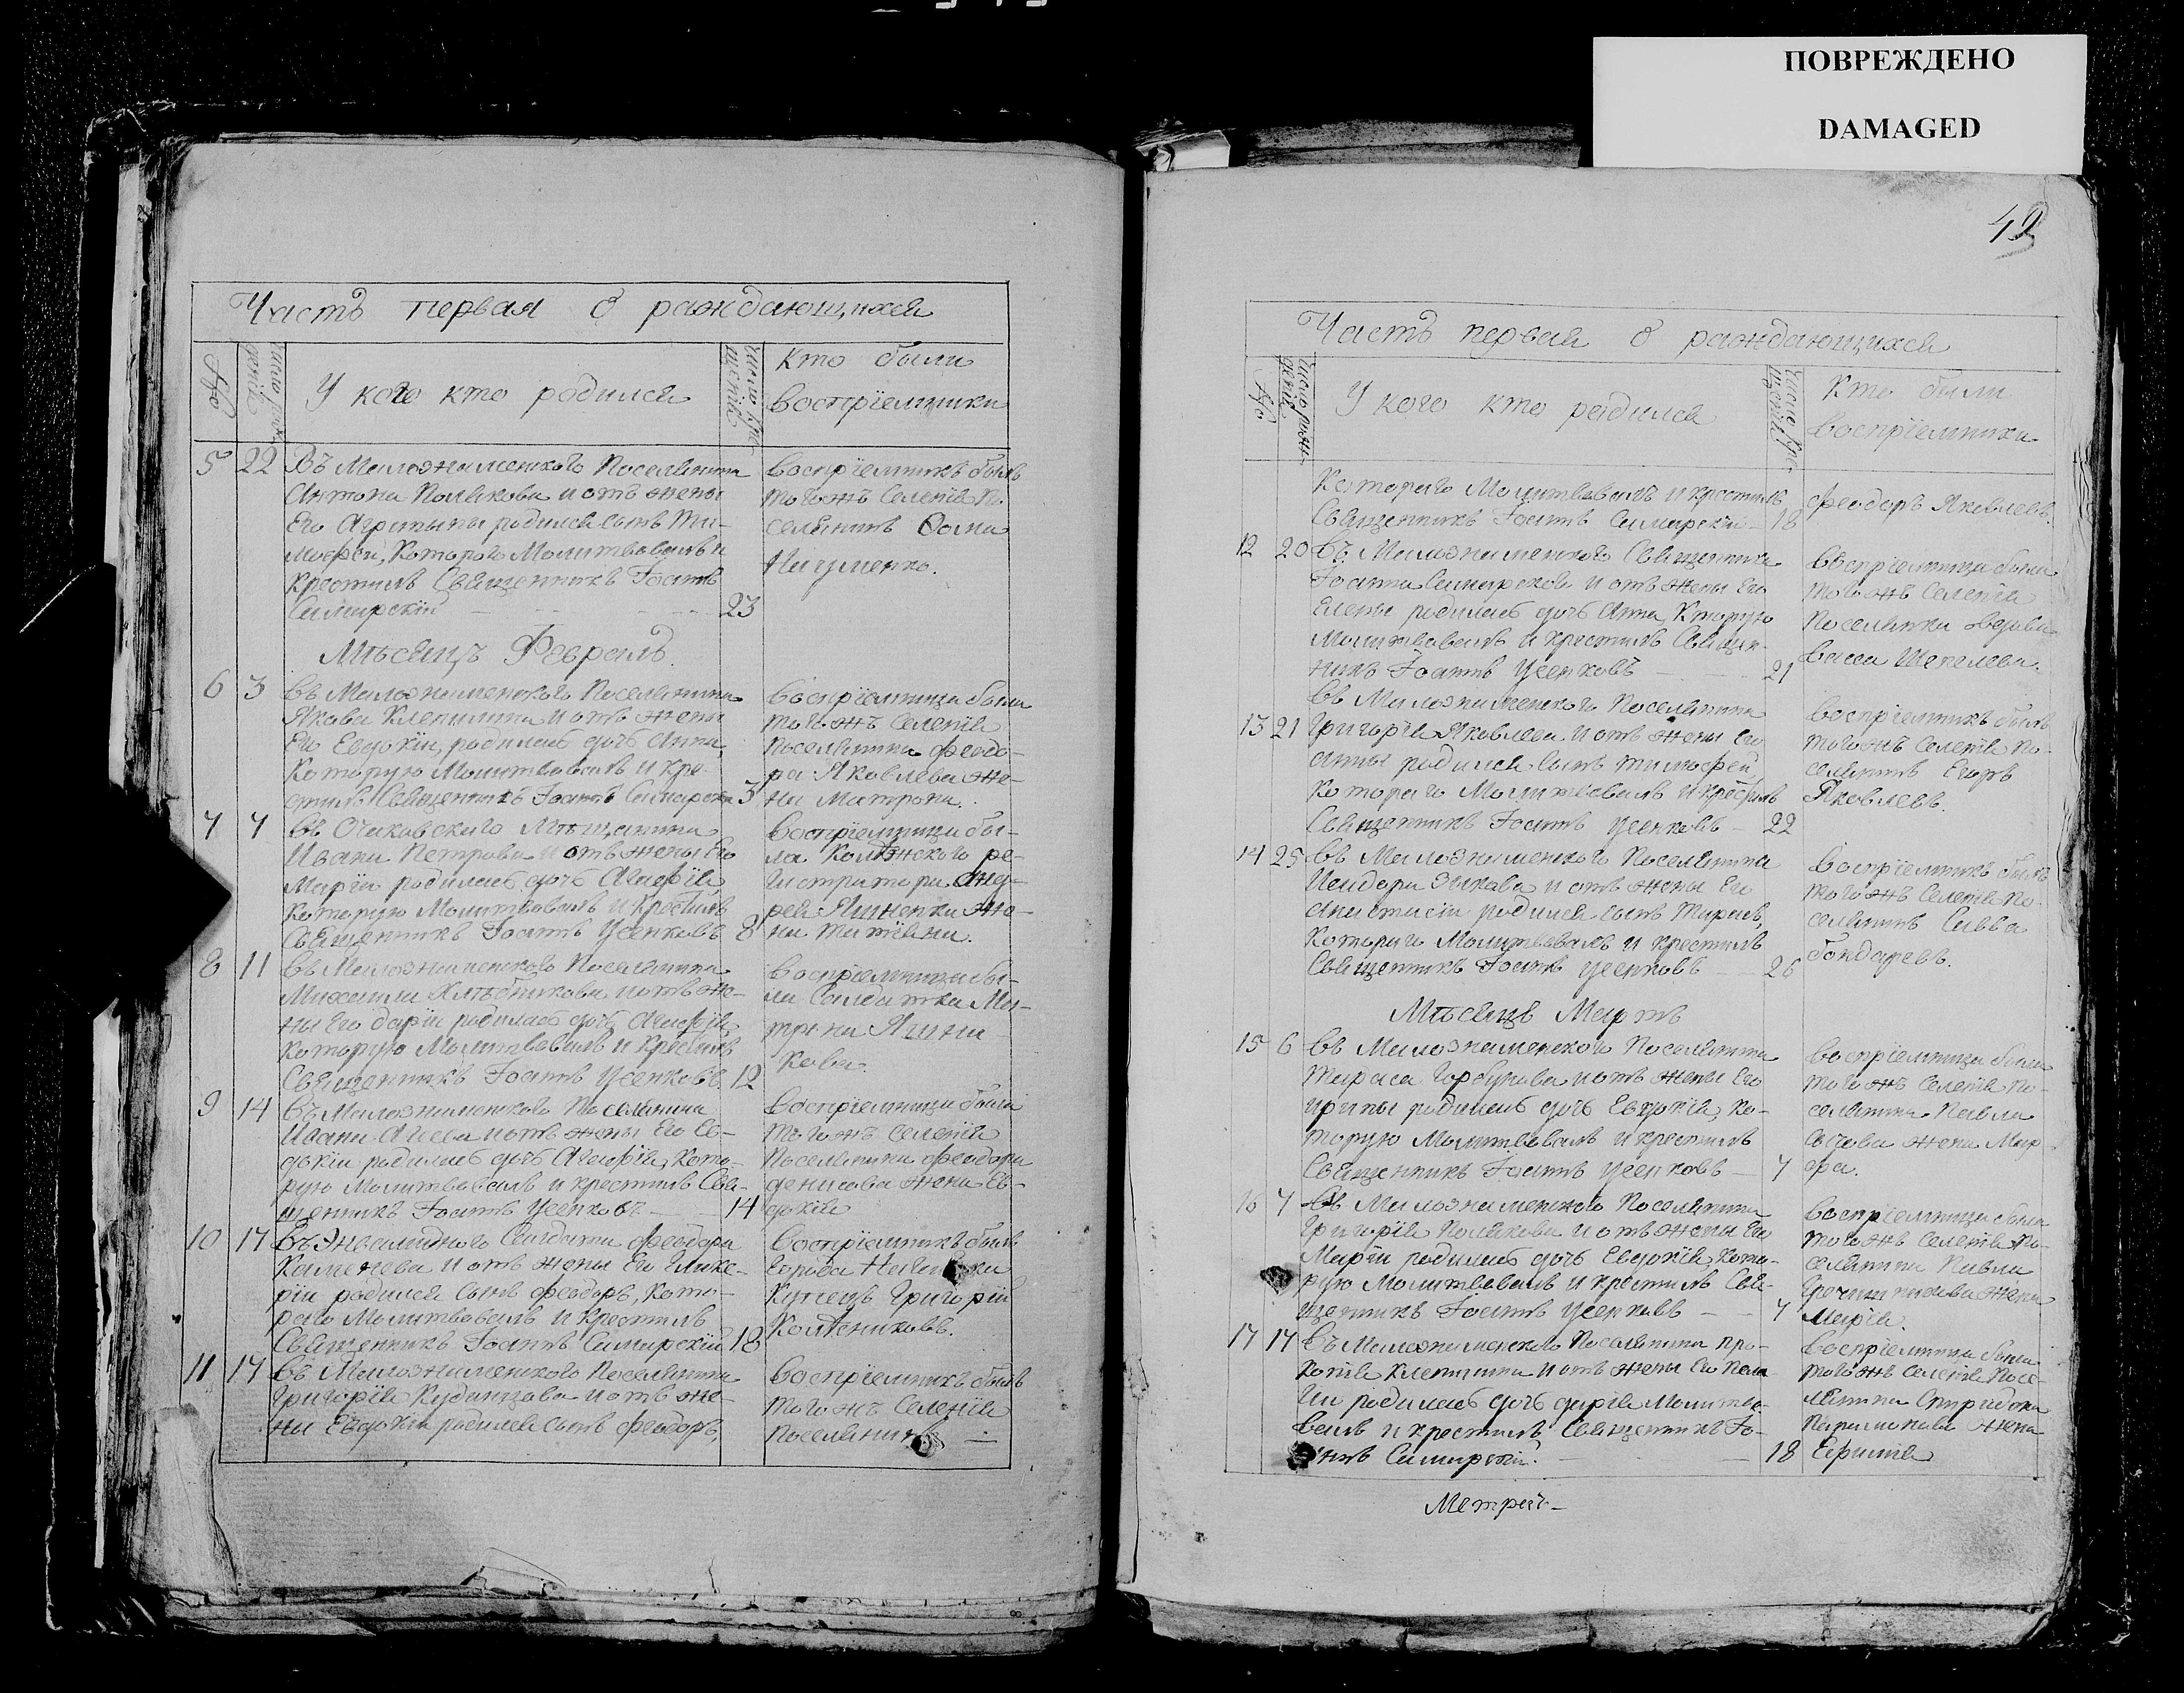 ПОВРЕЖДЕНО
DAMAGED
Часть первая о раждающихся
№
число рождений
У кого кто родился
число крещений
Кто были
воспріемники
5 22 Въ Малознаменского Поселянина
Антона Полякова и отъ жены
Его Агрипыны родился сынъ Ти-
мофей, Которого Молитвовалъ и
крестилъ Священникъ Іоаннъ
Самарскій 23
воспріемникъ былъ
тогожъ Селенія По
селянинъ Фома
Мѣсяцъ Февраль
6 3 Въ Малознаменского Поселянина
Якова Клепинина и отъ жены
Его Евдокіи, родилась дочь Анна,
Которую Молитвовалъ и кре-
стилъ Священникъ Іоаннъ Самарскій 3
воспріемница была
тогожъ Селенія
поселянина Феодо-
ра Яковлева же-
на Матрона.
7 7 Въ Очаковского Мѣщанина
Ивана Петрова и отъ жены Его
Маріи родилась дочь Агафія,
Которую Молитвовалъ и Крестилъ
Священникъ Іоаннъ Усенковъ 8
Воспріемница бы-
ла Колѣжского ре-
гистратора Анд-
рея Яшненка же-
на Татіана.
8 11 Въ Малознаменского Поселянина
Михаила Хлѣбникова и отъ же-
ны Его Даріи родилась дочь Агафія,
Которую Молитвовалъ и Крестилъ
Священникъ Іоаннъ Усенковъ. 12
воспріемница бы-
ла Салдатка Ма-
трона
кова.
9 14 Въ Малознаменского Поселянина
Ивана Агеева и отъ жены Его Ев-
докіи родилась дочь Агафія, Кото-
рую Молитвовалъ и крестилъ Свя-
щенникъ Іоаннъ Усенковъ 14
Воспріемница была
тогожъ Селенія
Поселянина Феодора
денисова жена Ев-
докія
10 17 Въ Энвалидного Салдата Феодора
Каменева и отъ жены Его Глике-
ріи родился сынъ Феодоръ, Кото-
рого Молитвовалъ и Крестилъ
Священникъ Іоаннъ Самарскій 18
Воспріемникъ былъ
Города
Купецъ Григорій
Колѣсниковъ.
11 17 Въ Малознаменского Поселянина
Григорія Куданцова и отъ же-
ны Евдокіи родился сынъ Феодоръ,
Воспріемникъ былъ
тогожъ Селенія
поселянинъ
Часть первая о раждающихся
№
число рождений
У кого кто родился
число крещений
Кто были
воспріемники
Которого Молитвовалъ и крестилъ
Священникъ Іоаннъ Самарскій 18
Феодоръ Яковлевъ.
12 20 Въ Малознаменского Священника
Іоанна Самарского и отъ жены Его
Елены родилась дочь Анна, Которую
Молитвовалъ и крестилъ Священ-
никъ Іоаннъ Усенковъ 21
Воспріемница была
тогожъ Селенія
Поселянка
Шепелева.
13 21 Въ Малознаменского Поселянина
Григорія Яковлева и отъ жены Его
Анны родился сынъ Тимофей,
Которого Молитвовалъ и крестилъ
Священникъ Іоаннъ Усенковъ 22
Воспріемникъ былъ
тогожъ Селенія по-
селянинъ Егоръ
Яковлевъ.
14 25 Въ Малознаменского Поселянина
Исидора Зыкова и отъ жены Его
Анастасіи родился сынъ Тарасъ,
Которого Молитвовалъ и крестилъ
Священникъ Іоаннъ Усенковъ 26
Воспріемникъ былъ
тогожъ Селенія По-
селянинъ Савва
бондаревъ.
Мѣсяцъ Мартъ
15 6 Въ Малознаменского Поселянина
Тараса Горбунова и отъ жены Его
Ирины родилась дочь Евдокія, Ко-
торую Молитвовалъ и крестилъ
Священникъ Іоаннъ Усенковъ 7
воспріемница была
тогожъ Селенія По-
селянина Павла
жена Мар
фа.
16 7 Въ Малознаменского Поселянина
Григорія Полякова и отъ жены Его
Маріи родилась дочь Евдокія, Кото-
рую Молитвовалъ и крестилъ Свя-
щенникъ Іоаннъ Усенковъ 7
Воспріемница была
тогожъ Селенія по-
селянина Павла
жена
Марія.
17 17 Въ Малознаменского Поселянина Про-
копія Клепинина и отъ жены Его Пела
гіи родилась дочь дарія Молитво-
валъ и крестилъ Священникъ Іо-
аннъ Самарскій. 18
Воспріемница была
тогожъ Селенія Посе-
лянина Спиридона
Парамонова жена
Евфимія
Метрич-